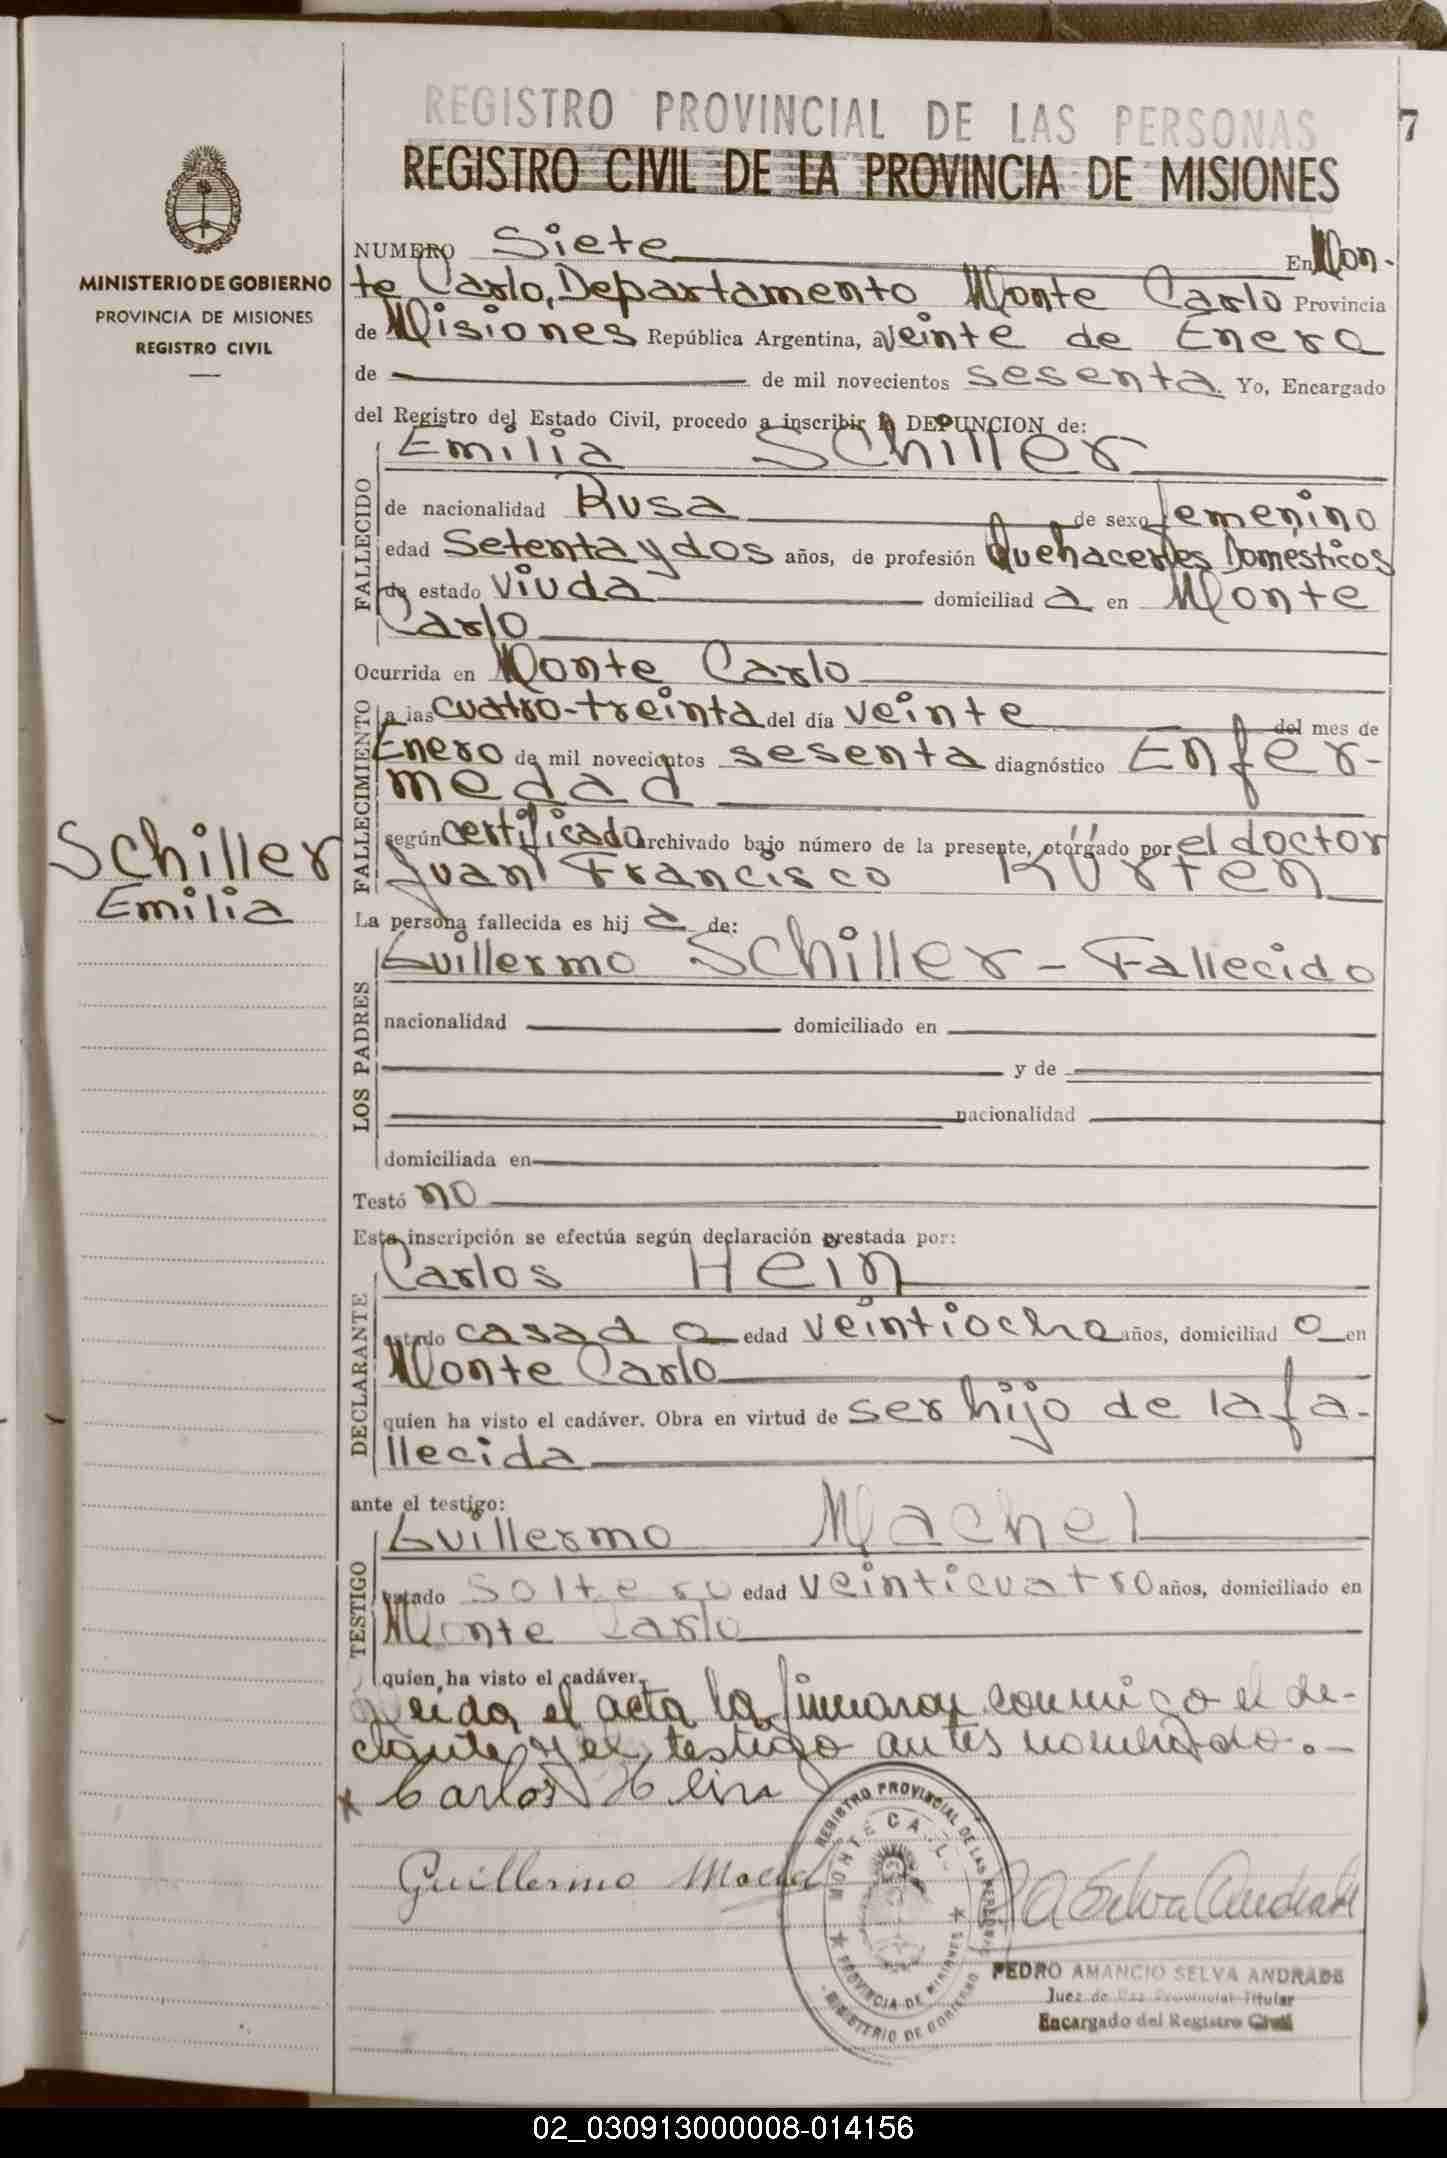 REGISTRO PROVINCIAL DE LAS PERSONAS
7
REGISTRO CIVIL DE LA PROVINCIA DE MISIONES
MINISTERIO DE GOBIERNO
PROVINCIA DE MISIONES
REGISTRO CIVIL
NUMERO Siete En Mon-
te Carlo, Departamento Monte Carlo Provincia
de Misiones República Argentina, a Veinte de Enero
de de mil novecientos sesenta. Yo, Encargado
del Registro del Estado Civil, procedo a inscribir la DEFUNCION de:
FALLECIDO
Emilia Schiller
de nacionalidad Rusa de sexo femenino
edad Setenta y dos años, de profesión Quehaceres Domésticos
de estado viuda domiciliad a en Monte
Carlo
Ocurrida en Monte Carlo
FALLECIMIENTO
a las cuatro-treinta del día veinte del mes de
Enero de mil novecientos sesenta diagnóstico Enfer-
medad
según certificado archivado bajo número de la presente, otorgado por el doctor
Juan Francisco Kürten
Schiller
Emilia
La persona fallecida es hij a de:
LOS PADRES
Guillermo Schiller - Fallecido
nacionalidad domiciliado en
y de
nacionalidad
domiciliada en
Testó no
Esta inscripción se efectúa según declaración prestada por:
DECLARANTE
Carlos Hein
estado casad o edad veintiocho años, domiciliad o en
Monte Carlo
quien ha visto el cadáver. Obra en virtud de ser hijo de la fa-
llecida
ante el testigo:
TESTIGO
Guillermo Machel
estado soltero edad veinticuatro años, domiciliado en
Monte Carlo
quien ha visto el cadáver,
Leida el acta la firmaron conmigo el de-
clarante y el testigo antes nombrado.-
x Carlos Hein
Guillermo Machel
REGISTRO PROVINCIAL DE LAS PERSONAS
MONTE CARLO
PROVINCIA DE MISIONES
MINISTERIO DE GOBIERNO
P A Selva Andrade
PEDRO AMANCIO SELVA ANDRADE
Juez de Paz Provincial Titular
Encargado del Registro Civil
02_030913000008-014156